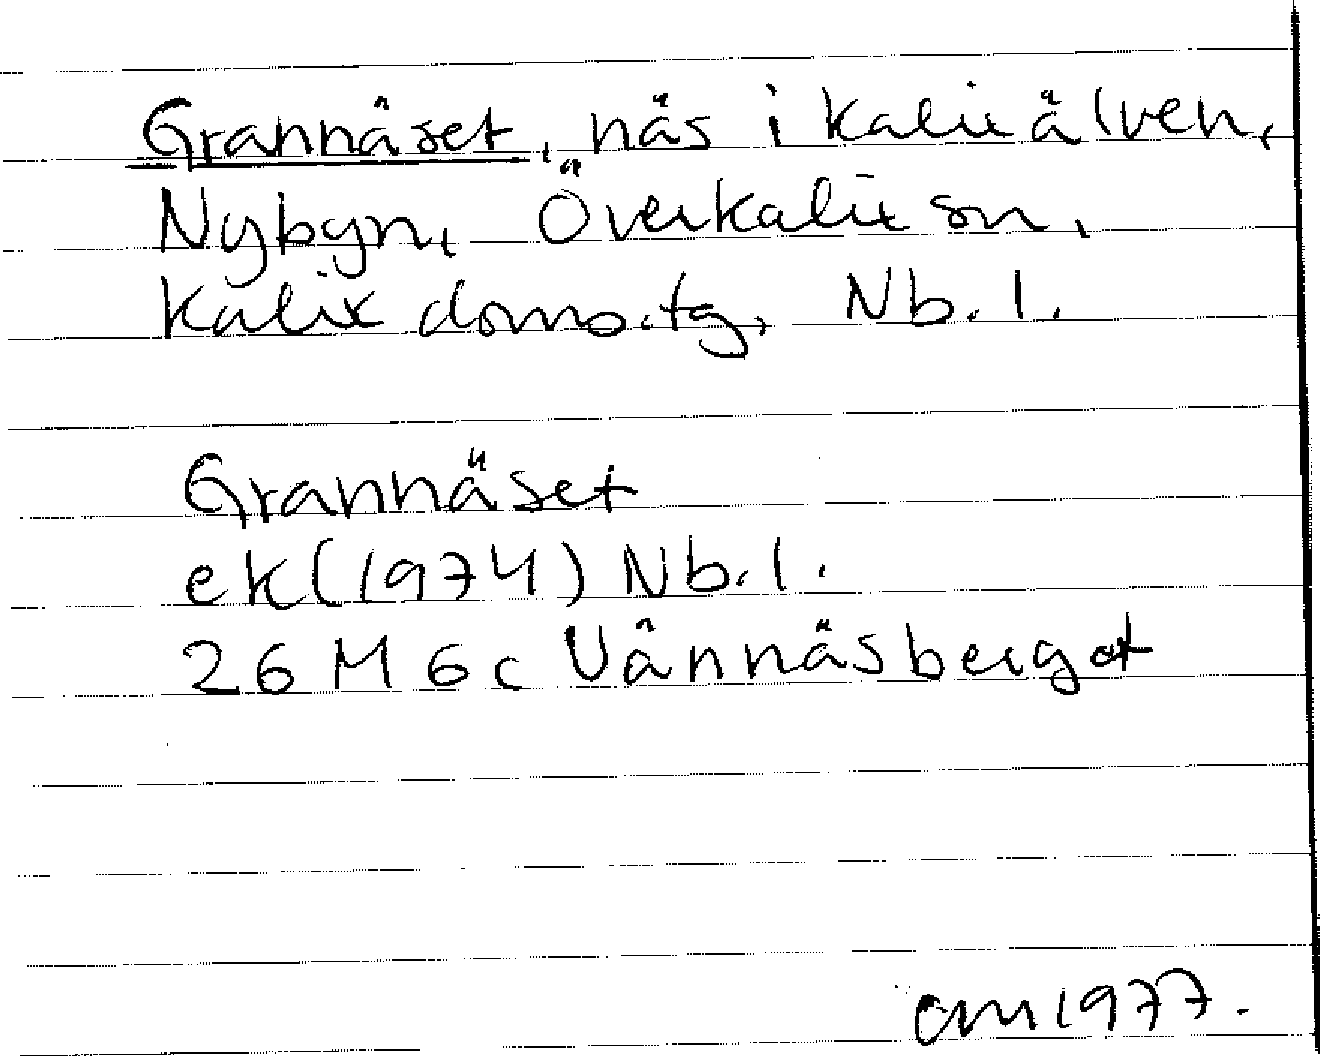 Grannäset, näs i Kalixälven,
Nybyn, Överkalix sn,
Kalix doms.tg, Nb. l.
Grannäset
ek (1974) Nb. l.
26 M 6 c Vännäsberget
am 1977.